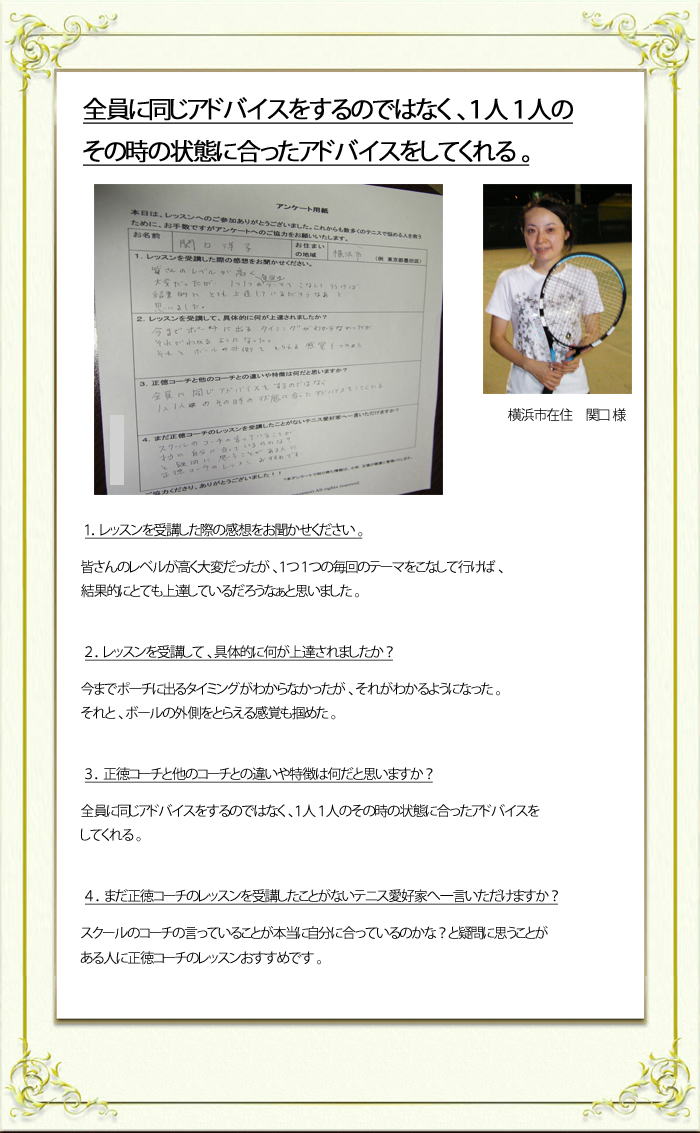 全員に同じアドバイスをするのではなく、1人1人の
その時の状態に合ったアドバイスをしてくれる。
アンケート用紙
本日は、レッスンへのご参加ありがとうございました。これからも数多くのテニスで悩める人を救う
ために、お手数ですがアンケートへのご協力をお願いいたします。
お名前 関口 洋子 お住まいの地域 横浜市 (例 東京都墨田区)
1. レッスンを受講した際の感想をお聞かせください。
皆さんのレベルが高く
大変だったが、1つ1つの毎回のテーマをこなして行けば
結果的に とても上達しているだろうなぁと
思いました。
2. レッスンを受講して、具体的に何が上達されましたか?
今までポーチに出るタイミングがわからなかったが
それがわかるようになった。
それと ボールの外側を とらえる感覚も
3. 正徳コーチと他のコーチとの違いや特徴は何だと思いますか?
全員に同じアドバイスをするのではなく
1人1人のその時の状態に合ったアドバイスをしてくれる
4. まだ正徳コーチのレッスンを受講したことがないテニス愛好家へ一言いただけますか?
スクールのコーチの言っていることが
本当に自分に合っているのかな?
と疑問に思うことがある人に
正徳コーチのレッスンおすすめです
ご協力くださり、ありがとうございました!!
All rights reserved.
横浜市在住 関口様
1. レッスンを受講した際の感想をお聞かせください。
皆さんのレベルが高く大変だったが、1つ1つの毎回のテーマをこなして行けば、
結果的にとても上達しているだろうなぁと思いました。
2. レッスンを受講して、具体的に何が上達されましたか?
今までポーチに出るタイミングがわからなかったが、それがわかるようになった。
それと、ボールの外側をとらえる感覚も掴めた。
3. 正徳コーチと他のコーチとの違いや特徴は何だと思いますか?
全員に同じアドバイスをするのではなく、1人1人のその時の状態に合ったアドバイスを
してくれる。
4. まだ正徳コーチのレッスンを受講したことがないテニス愛好家へ一言いただけますか?
スクールのコーチの言っていることが本当に自分に合っているのかな?と疑問に思うことが
ある人に正徳コーチのレッスンおすすめです。